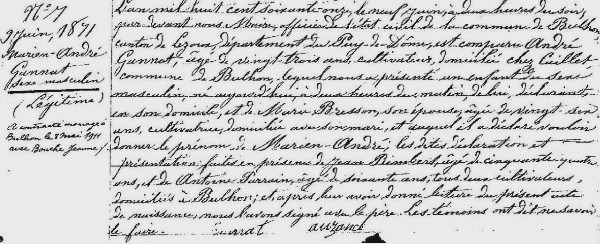 N° 17
9 Juin, 1871
Marien-André
Gannat
Sexe masculin
(Légitime)
A contracté mariage à
Bulhon le 8 mai 1911
avec Bouche Jeanne
L'an mil huit cent soixante-onze, le neuf Juin, à deux heures du soir,
par devant nous Maire, officier de l'état civil de la commune de Bulhon
canton de Lezoux, département du Puy-de-Dôme, est comparu André
Gannat, âgé de vingt trois ans, cultivateur, domicilié chez
commune de Bulhon, lequel nous a présenté un enfant du sexe
masculin, né aujourd'hui à deux heures du matin, de lui, déclarant
en son domicile, et de Marie Bresson, son épouse, âgée de vingt-six
ans, cultivatrice, domiciliée avec son mari, et auquel il a déclaré vouloir
donner le prénom de Marien-André, les dites déclaration et
présentation faites en présence de Jean âgé de cinquante quatre
ans, et de Antoine âgé de soixante ans, tous deux cultivateurs,
domiciliés à Bulhon; et, après leur avoir donné lecture du présent acte
de naissance, nous l'avons signé avec le père. Les témoins ont dit ne savoir
le faire.